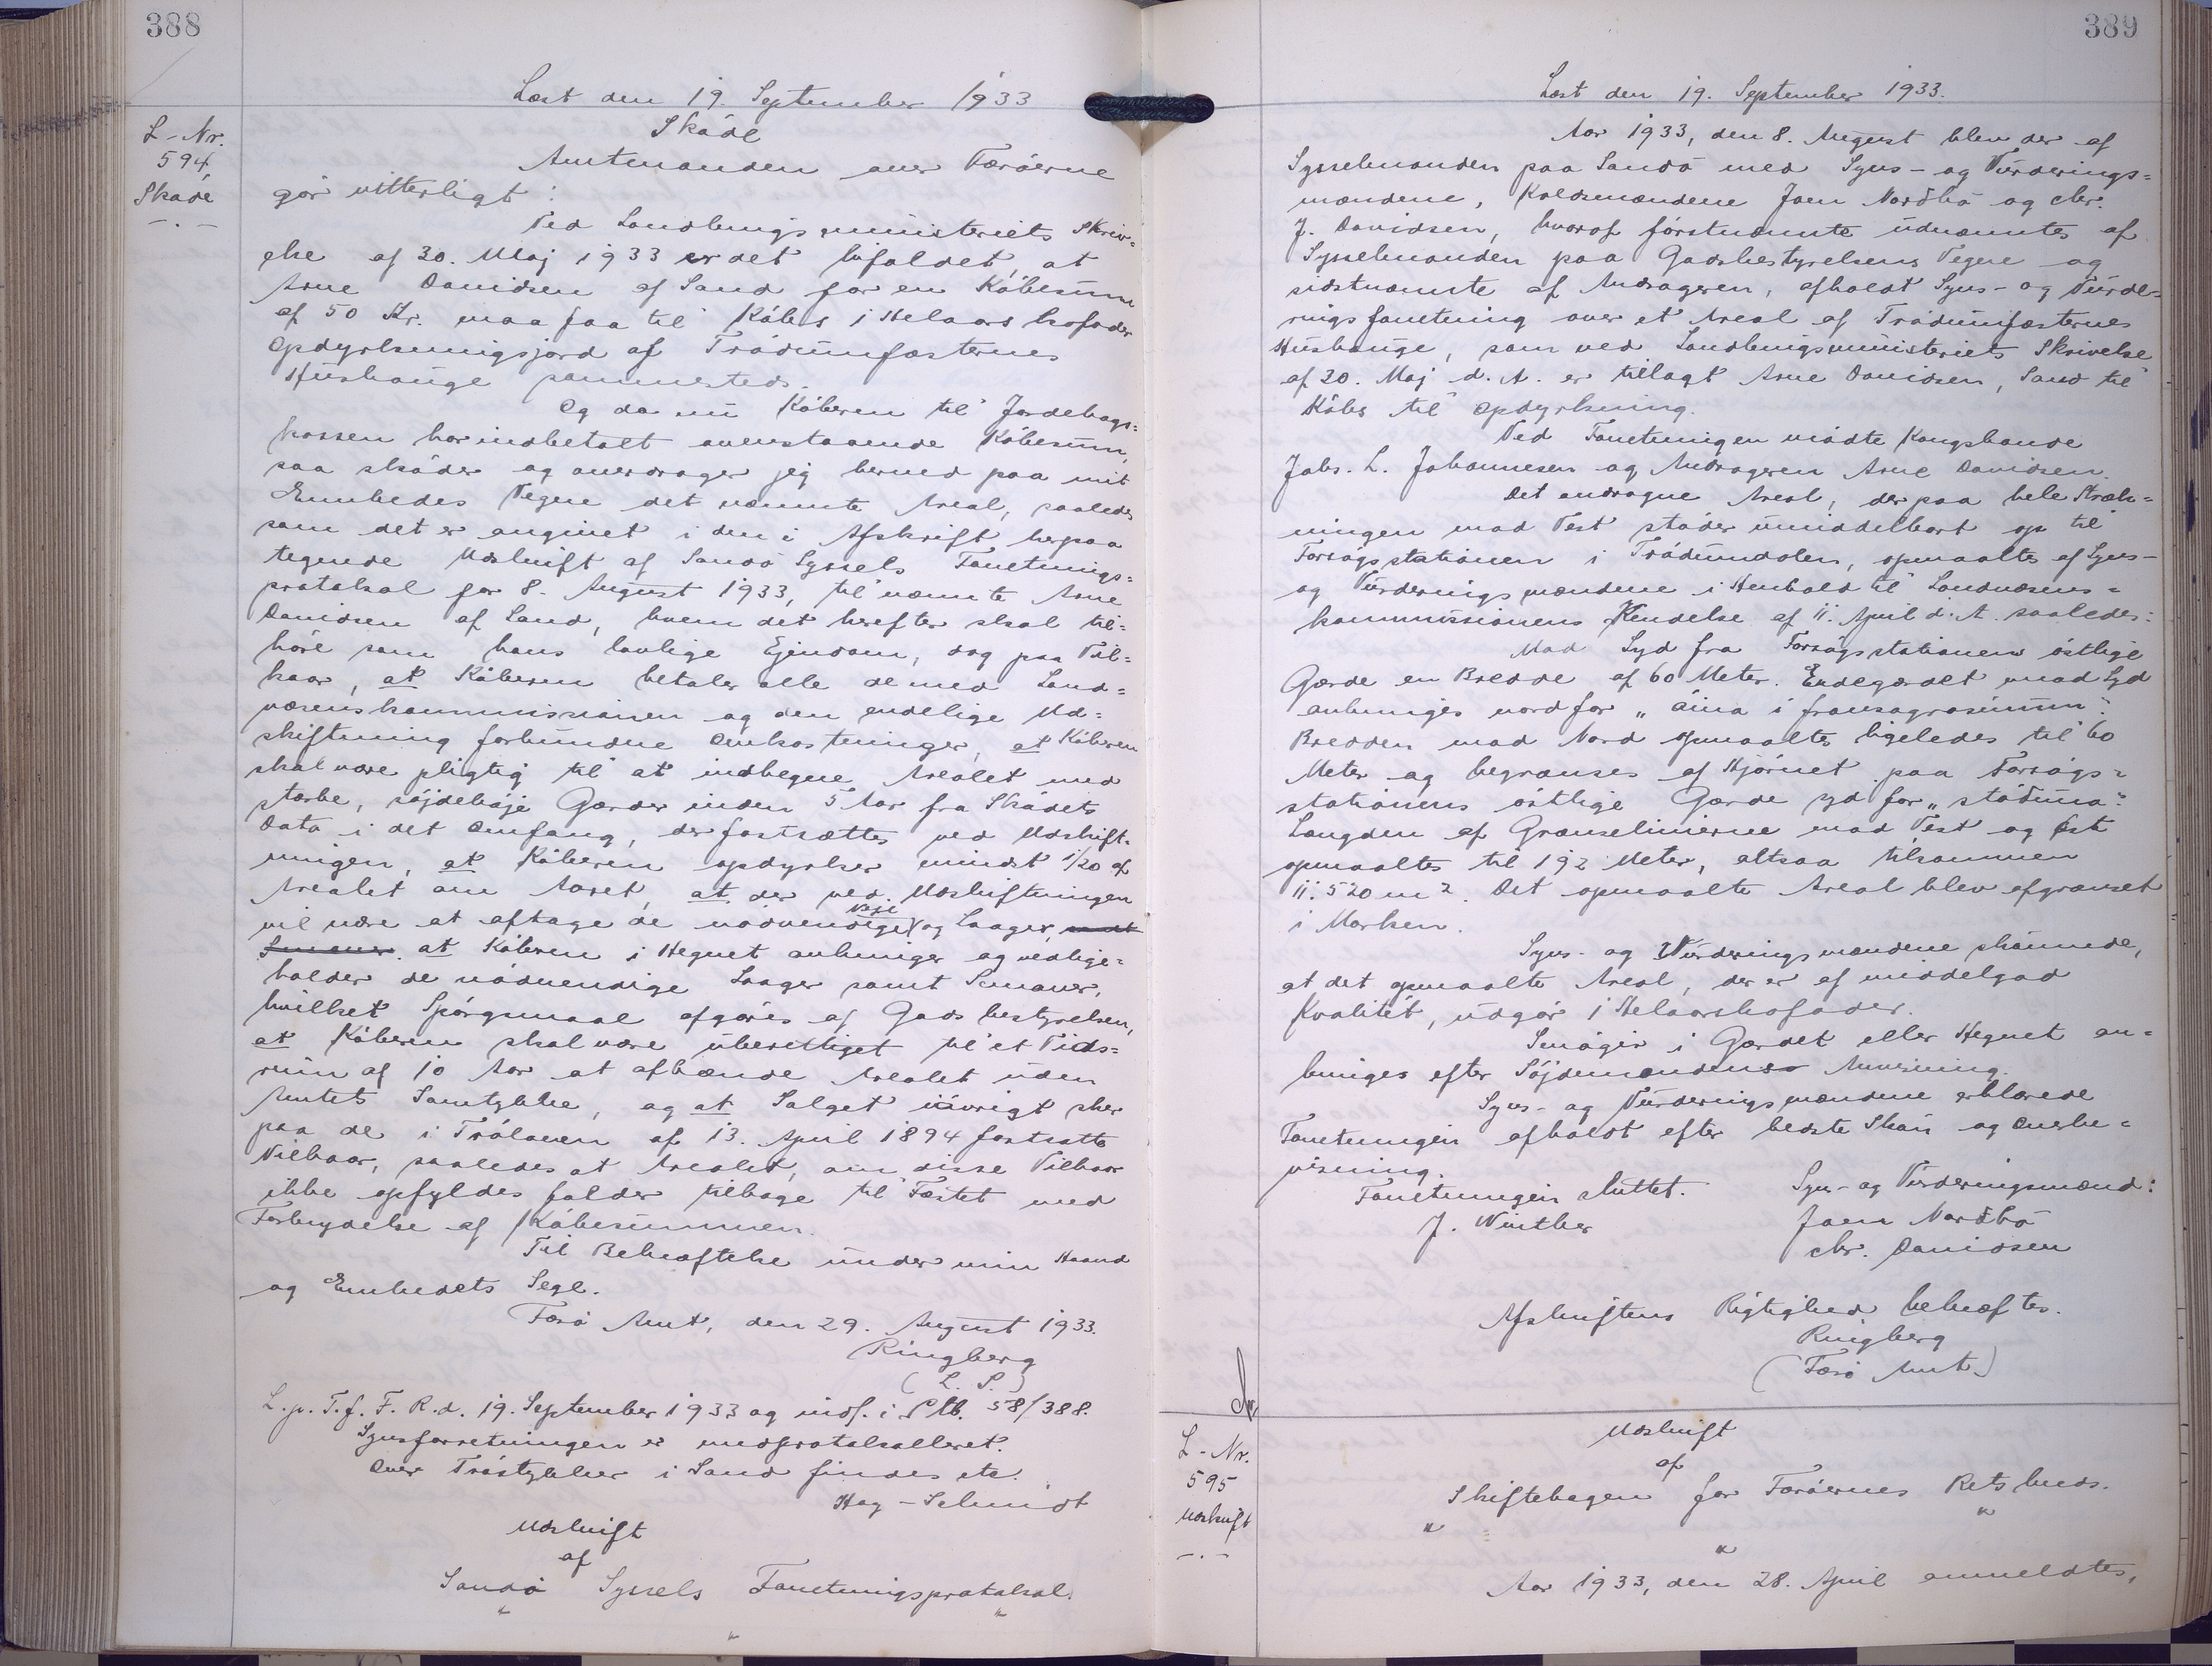 388
Læst den 19. September 1933
L-Nr.
594,
Skøde
-.-
Skøde
Amtmanden over Færøerne
gør vitterligt:
Ved Landbrugsministeriets Skriv=
else af 30. Maj 1933 er det bifaldet, at
Arne Davidsen af Sand for en Købesum
af 50 Kr. maa faa til Købs 1 Helaars kofoder
Opdyrkningsjord af Trødumfæsternes
Hushauge sammesteds.
Og da nu Køberen til Jordebogs=
kassen har indbetalt ovenstaaende Købesum,
saa skøder og overdrager jeg herved paa mit
Embedes Vegne det nævnte Areal, saaledes
som det er angivet i den i Afskrift herpaa
tegnede Udskrift af Sandø Syssels Forretnings=
protokol for 8. August 1933, til nævnte Arne
Davidsen af Sand, hvem det herefter skal til=
høre som hans lovlige Ejendom, dog paa Vil=
kaar, at Køberen betaler alle de med Land=
væsenskommissionen og den endelige Ud=
skiftning forbundne Omkostninger, at Køberen
skal være pligtig til at indhegne Arealet med
stærke, søjdehøje Gærder inden 5 Aar fra Skødets
Dato i det Omfang, der fastsættes ved Udskift=
ningen, at Køberen opdyrker mindst 1/20 af
Arealet om Aaret, at der ved Udskiftningen
vil være at aftage de nødvendige Veje og Laager,
at Køberen i Hegnet anbringer og vedlige=
holder de nødvendige Laager samt Smøuer,
hvilket Spørgsmaal afgøres af Gods bestyrelsen,
at Køberen skal være uberettiget til et Tids=
rum af 10 Aar at afhænde Arealet uden
Amtets Samtykke, og at Salget iøvrigt sker
paa de i Trøloven af 13. April 1894 fastsatte
Vilkaar, saaledes at Arealet, om disse Vilkaar
ikke opfyldes falder tilbage til Fæstet med
Forbrydelse af Købesummen.
Til Bekræftelse under min Haand
og Embedets Segl.
Færø Amt, den 29. August 1933.
Ringberg
(L. S.)
L. p. T. f. F. R. d. 19. September 1933 og indf. i S Ptb. 58/388.
Synsforretningen er medprotokolleret.
Over Trøstykker i Sand findes etc.
Hag-Schmidt
Udskrift
af
Sandø Syssels Forretningsprotokol.
" " "
389
Læst den 19. September 1933.
Aar 1933, den 8. August blev der af
Sysselmanden paa Sandø med Syns- og Vurderings=
mændene, Koldsmændene Joen Nordbø og Chr.
J. Davidsen, hvoraf førstnævnte udnævntes af
Sysselmanden paa Godsbestyrelsens Vegne og
sidstnævnte af Andrageren, afholdt Syns- og Vurde=
ringsforretning over et Areal af Trødumfæsternes
Hushauge, som ved Landbrugsministeriets Skrivelse
af 20. Maj d. A. er tillagt Arne Davidsen, Sand til
Købs til Opdyrkning.
Ved Forretningen mødte Kongsbonde
Johs. L. Johannesen og Andrageren Arne Davidsen.
Det andragne Areal, der paa hele Stræk=
ningen mod Vest støder umiddelbart op til
Forsøgsstationen i Trødumdølen, opmaaltes af Syns-
og Vurderingsmændene i Henhold til Landvæsens=
kommissionens Kendelse af 11. April d. A. saaledes:
Mod Syd fra Forsøgsstationens østlige
Gærde en Bredde af 60 Meter. Endegærdet mod Syd
anbringes nordfor „áina i fransagrasinum".
Bredden mod Nord opmaaltes ligeledes til 60
Meter og begrænses af Hjørnet paa Forsøgs=
stationens østlige Gærde syd for „støðina".
Længden af Grænselinierne mod Vest og Øst
opmaaltes til 192 Meter, altsaa tilsammen
11.520 m2. Det opmaalte Areal blev afgrænset
i Marken.
Syns- og Vurderingsmændene skønnede,
at det opmaalte Areal, der er af middelgod
Kvalitet, udgør 1 Helaarskofoder.
Smøgir i Gærdet eller Hegnet an=
bringes efter Søjdemændenes Anvisning.
Syns- og Vurderingsmændene erklærede
Forretningen afholdt efter bedste Skøn og Overbe=
visning.
Forretningen sluttet.
J. Winther
Syns- og Vurderingsmænd:
Joen Nordbø
Chr. Davidsen
Afskriftens Rigtighed bekræftes.
Ringberg
(Færø Amt)
L-Nr.
595
Udskrift
-.-
Udskrift
af
Skiftebogen for Færøernes Retskreds.
" " "
Aar 1933, den 28. April anmeldtes,